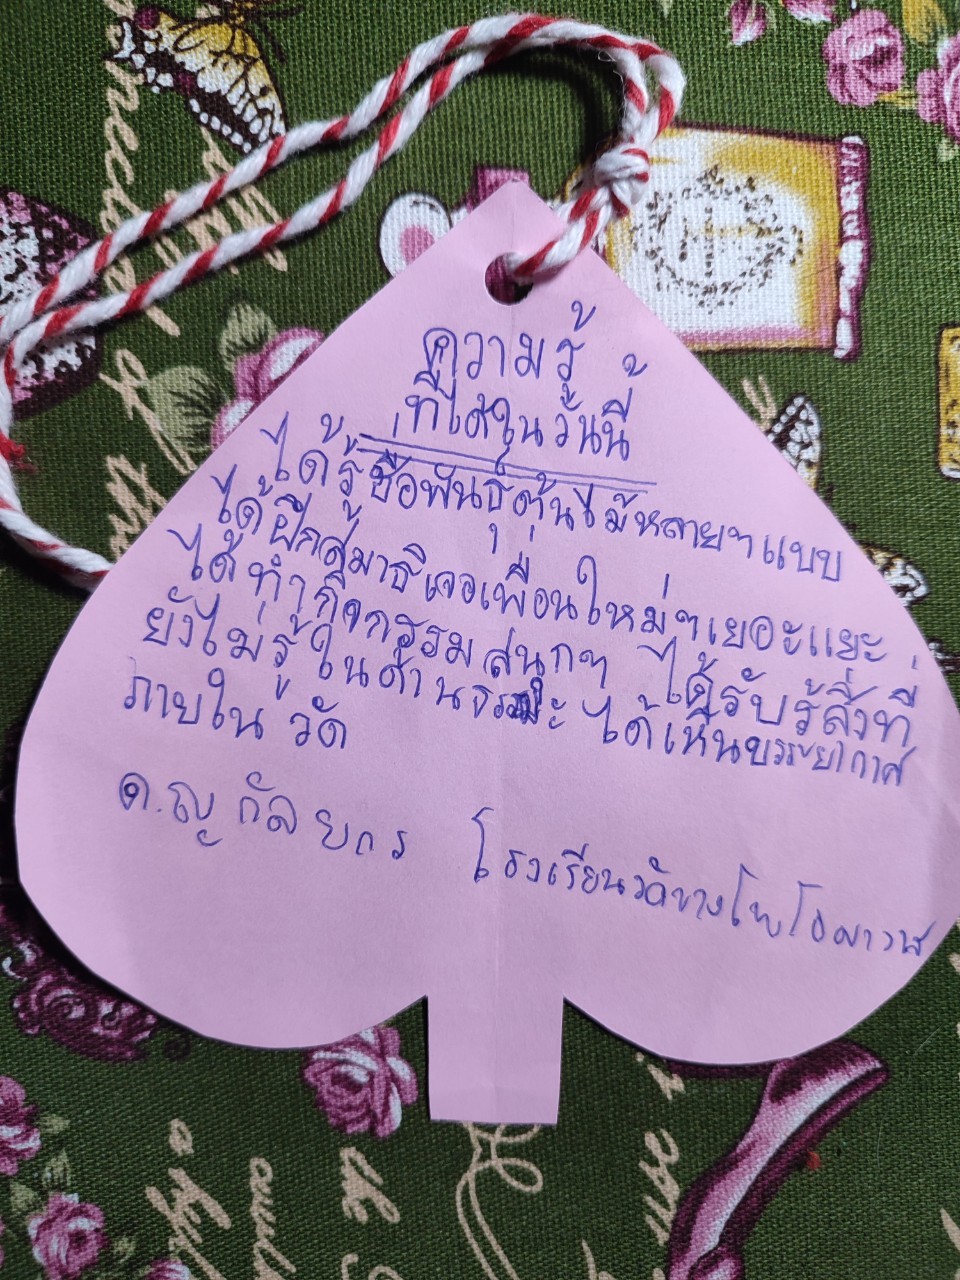 ความรู้
ที่ได้ในวันนี้
ได้รู้ชื่อพันธุ์ต้นไม้หลายๆแบบ
ได้ฝึกสมาธิเจอเพื่อนใหม่ๆเยอะแยะ
ได้ทำกิจกรรมสนุกๆ ได้รับรู้สิ่งที่
ยังไม่รู้ในด้านธรรมะ ได้เห็นบรรยากาศ
ภายใน วัด
ด.ญ กัลยกร โรงเรียนวัดบางโพโอมาวาส